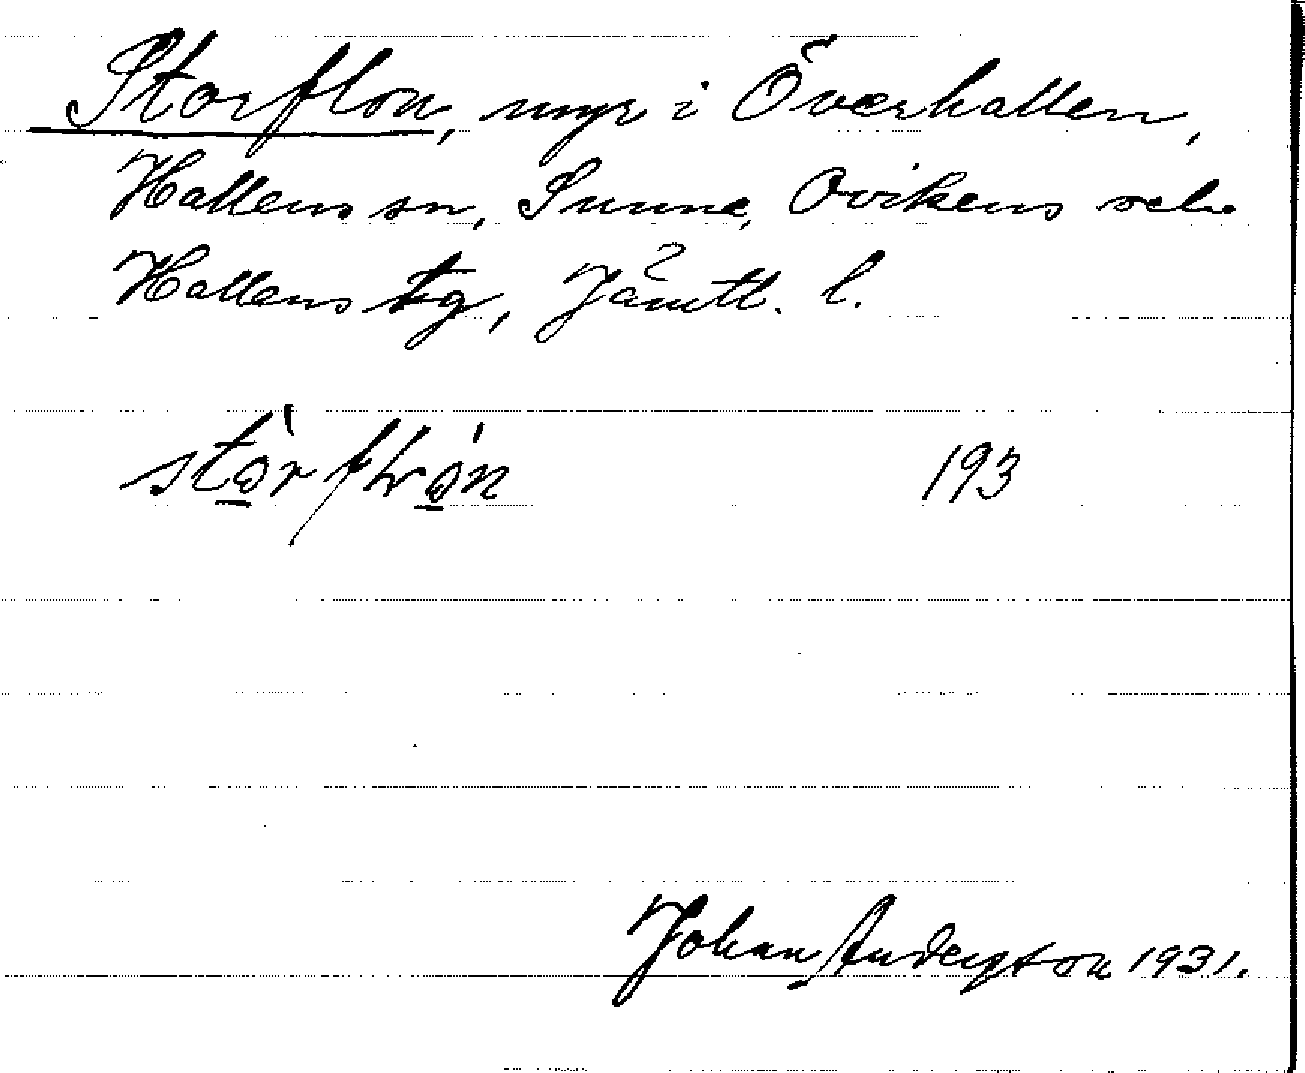 Storflon, myr i Överhallen,
Hallens sn, Sunne, Ovikens och
Hallens tg, Jämtl. l.
193
Johan Anderston 1931.